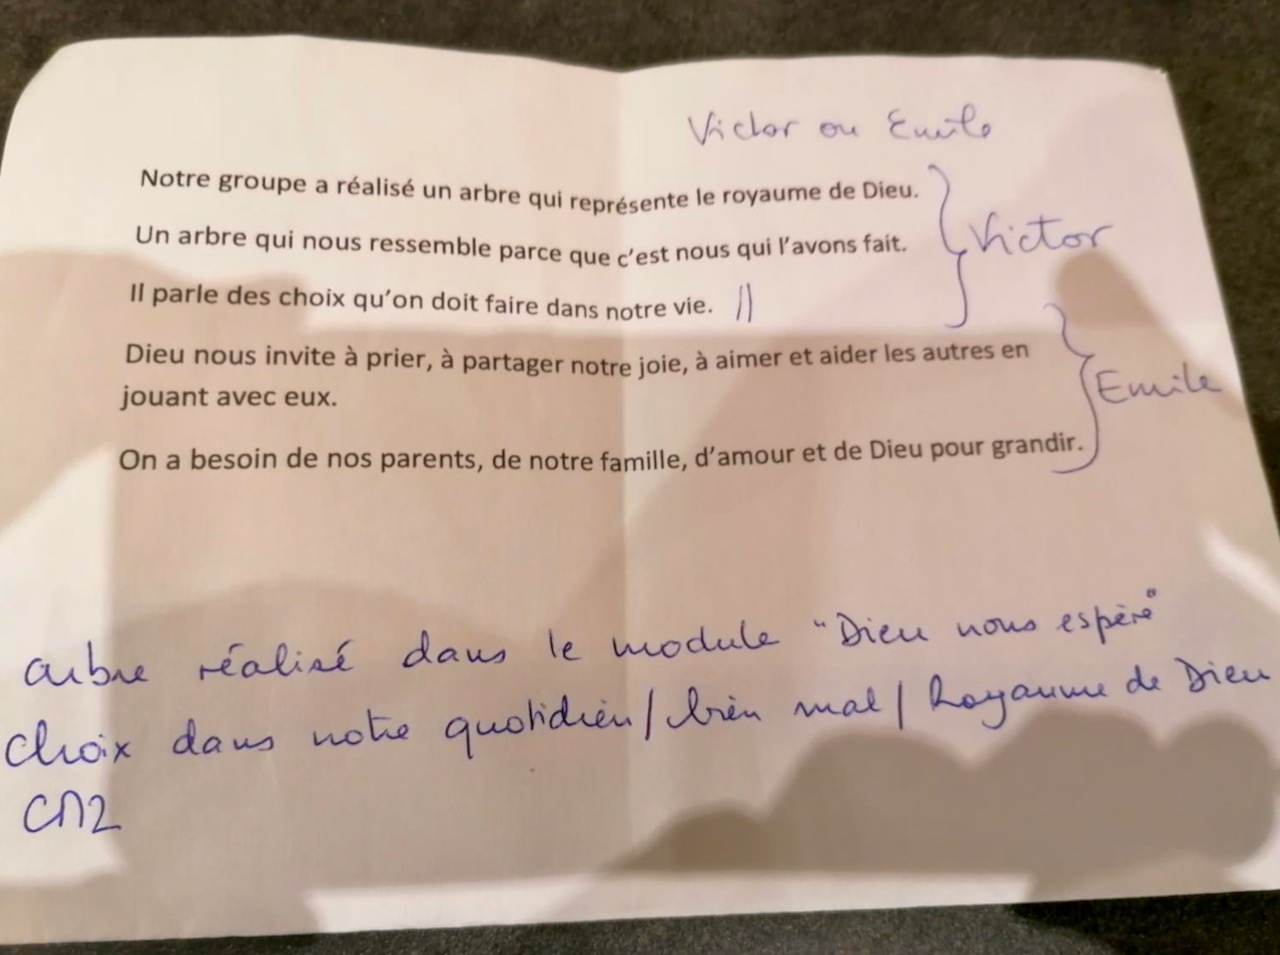 Victor ou Emile
Notre groupe a réalisé un arbre qui représente le royaume de Dieu.
Un arbre qui nous ressemble parce que c'est nous qui l'avons fait.
Victor
Il parle des choix qu'on doit faire dans notre vie. ||
Dieu nous invite à prier, à partager notre joie, à aimer et aider les autres en
jouant avec eux.
Emile
On a besoin de nos parents, de notre famille, d'amour et de Dieu pour grandir.
arbre réalisé dans le module "Dieu nous espère"
choix dans notre quotidien / bien mal / Royaume de Dieu
CM2